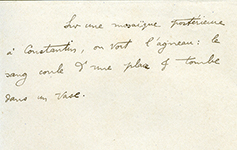 Sur une mosaïque postérieure
à Constantin, on voit l'agneau : le
sang coule d'une plaie & tombe
dans un vase.